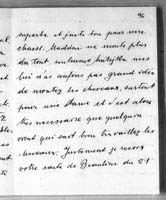 superbe et juste bon pour une
chasse. Maddine ne monte plus
du tout, seulement
lui n'a aucun pas grand idée
de monter les chevaux, surtout
pour une dame et c'est alors
très necessaire que quelqu'un
vient qui sait bien travailler les
chevaux. Justement je reçois
votre carte de Beaulieu du 21